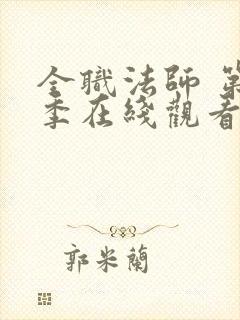 全職法師 第
季在綫觀看
郭米蘭